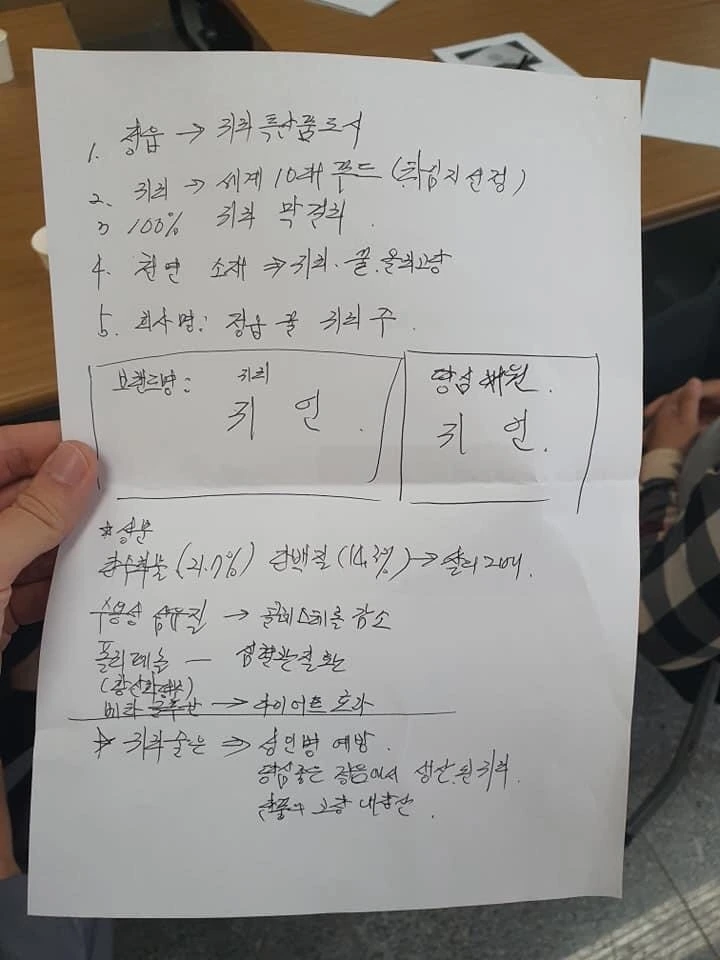 1. 정읍 → 귀리 특산품 도시
2. 귀리 → 세계 10대 푸드 (타임지 선정)
3 100% 귀리 막걸리
4. 천연 소재 ⇒ 귀리. 꿀.
5. 회사명: 정읍 꿀 귀리 주.
브랜드명: 귀리
귀 언.
귀 언.
*성분
탄수화물 (21.7%) 단백질 (14.3%) → 쌀의 2배.
수용성 섬유질 → 콜레스테롤 감소
폴리페놀 — 심혈관질환
베타 글루칸 → 다이어트 효과
* 귀리술은 ⇒ 성인병 예방.
땅심좋은 정읍에서 생산된 귀리.